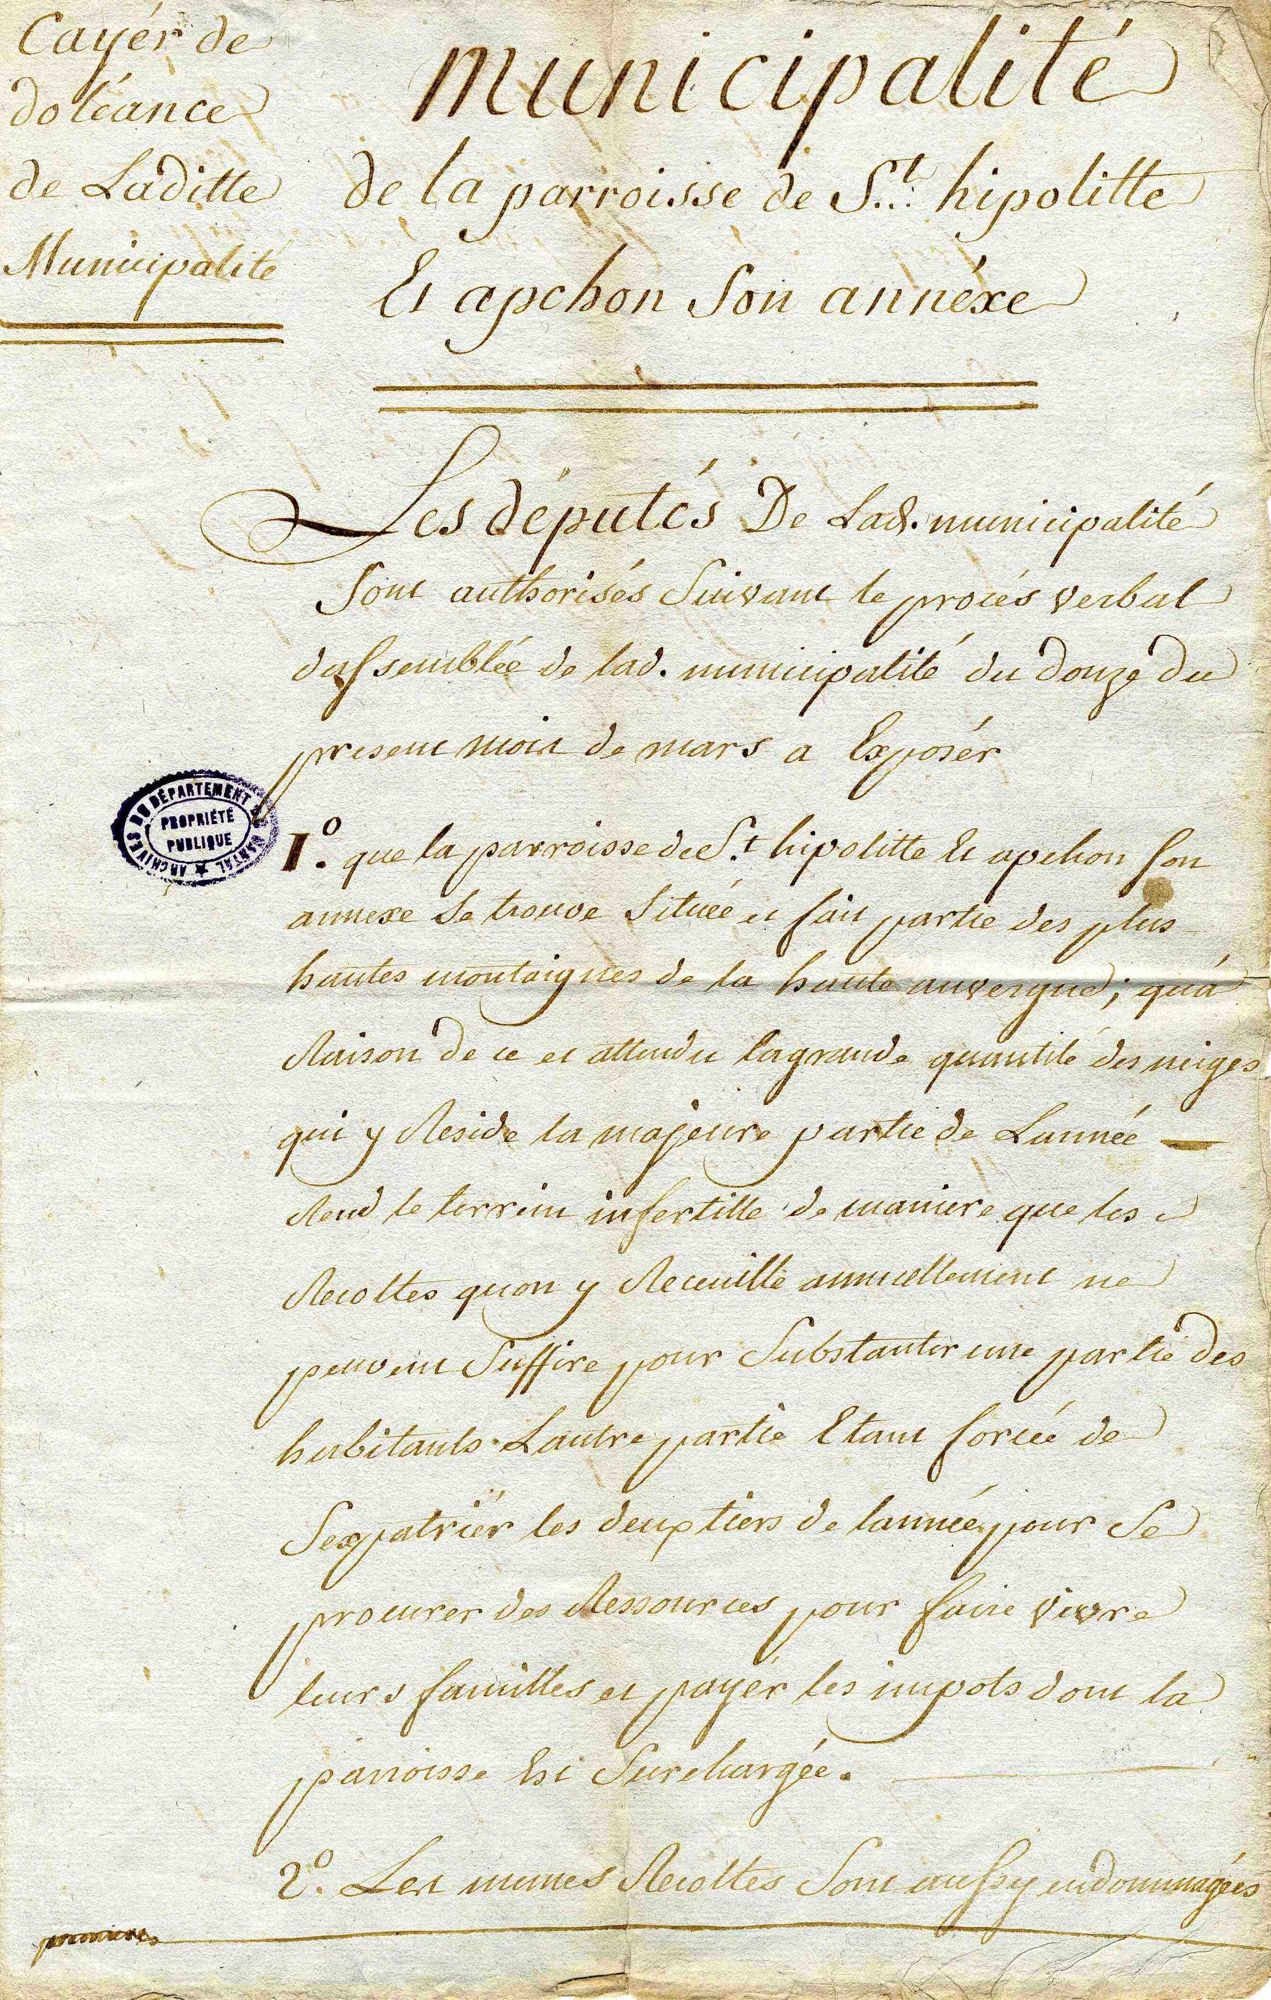 Cayér de
doléance
de Laditte
Municipalité
municipalité
de la parroisse de St. hipolitte
Et apchon son annéxe
Les députés De Lad. municipalité
sont authorisés suivant le procés verbal
dassemblée de lad. municipalité du douze du
present mois de mars a Exposér
ARCHIVES DU DÉPARTEMENT DU CANTAL
PROPRIÉTÉ
PUBLIQUE
1o. que la parroisse de St. hipolitte Et apchon son
annexe se trouve située et fait partie des plus
hautes montaignes de la haute auvergne; qu'á
Raison de ce et attendu la grande quantité des neiges
qui y Reside la majeure partie de Lannée
Rend le terrein infertille de maniere que les
Recoltes quon y Receuille annuellement ne
peuvent suffire pour substanter une partie des
habitants. Lautre partie Etant forcée de
sexpatriër les deux tiers de lannée pour se
procurer des Ressources pour faire vivre
leurs familles et payér les impots dont la
parroisse Est surchargée.
2o. Les mêmes Recoltes sont aussy endommagées
premiere